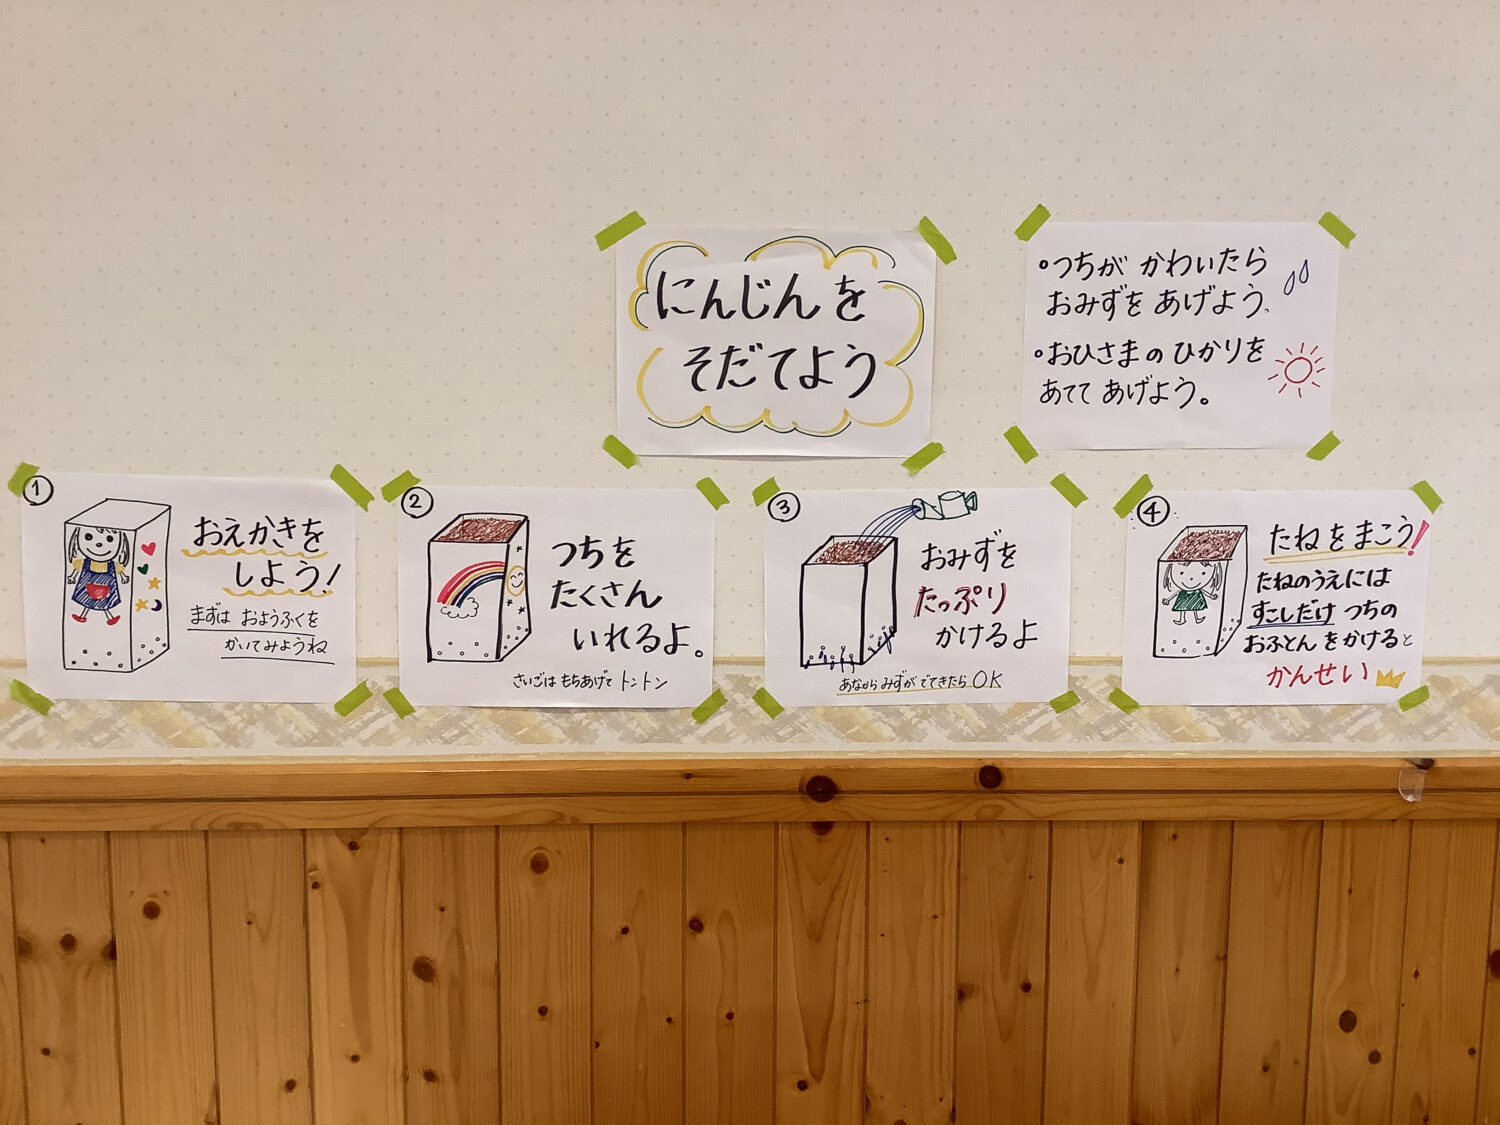 にんじんを
そだてよう
・つちが かわいたら
おみずを あげよう。
・おひさまの ひかりを
あてて あげよう。
①
おえかきを
しよう!
まずは おようふくを
かいてみようね
②
つちを
たくさん
いれるよ。
さいごは もちあげて トントン
③
おみずを
たっぷり
かけるよ
あなから みずが でてきたら OK
④
たねをまこう!
たねのうえには
すこしだけ つちの
おふとんをかけると
かんせい